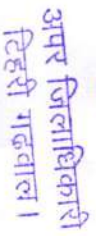 अपर जिलाधिकारी
टिहरी गढ़वाल।